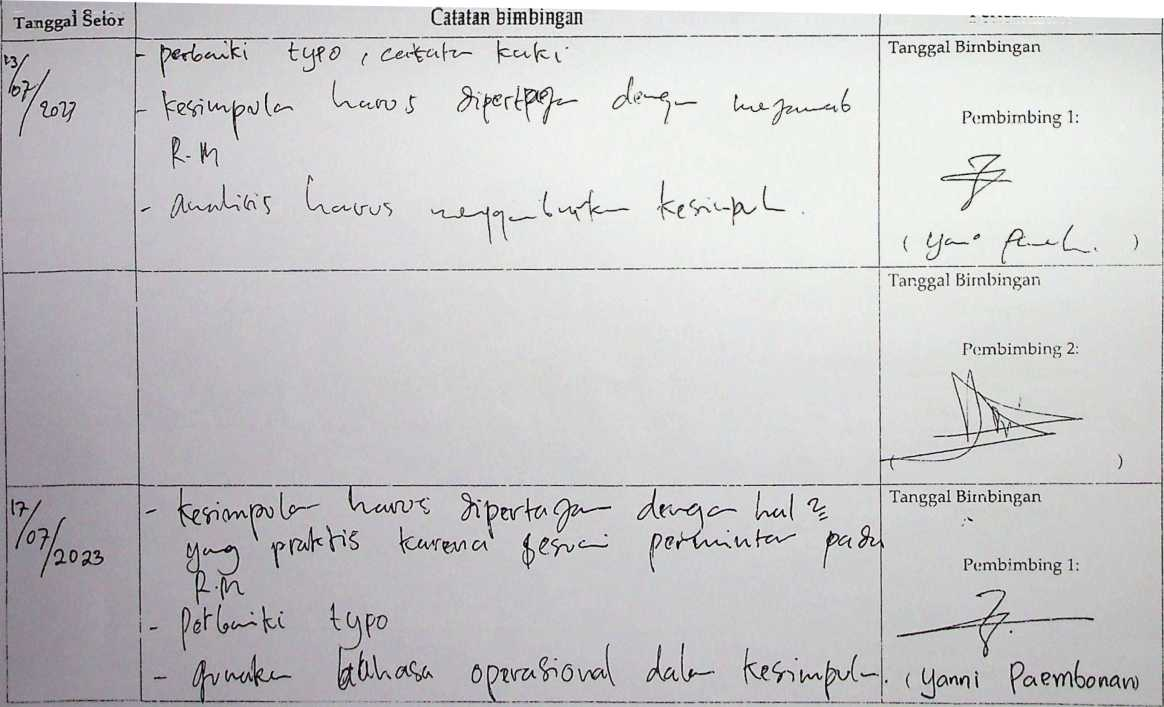 Tanggal Setor Catatan bimbingan
13/07/2023
- perbaiki typo, catata kaki
- kesimpula harus dengan mejawab
R.M
- analisis harus kesimpul.
Tanggal Bimbingan
Pembimbing 1:
( )
Tanggal Bimbingan
Pembimbing 2:
( )
17/07/2023
- kesimpulan harus dipertajam dengan hal 2
yang praktis karena sesuai permintaan pada
R.M
- Perbaiki typo
- gunakan bahasa operasional dalam kesimpulan.
Tanggal Bimbingan
Pembimbing 1:
( Yanni Paembonan